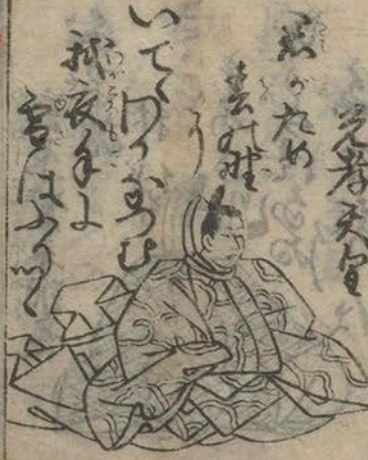 光孝天皇
君がため
春の野
に
いでゝわかなつむ
我衣手に
雪はふりつゝ